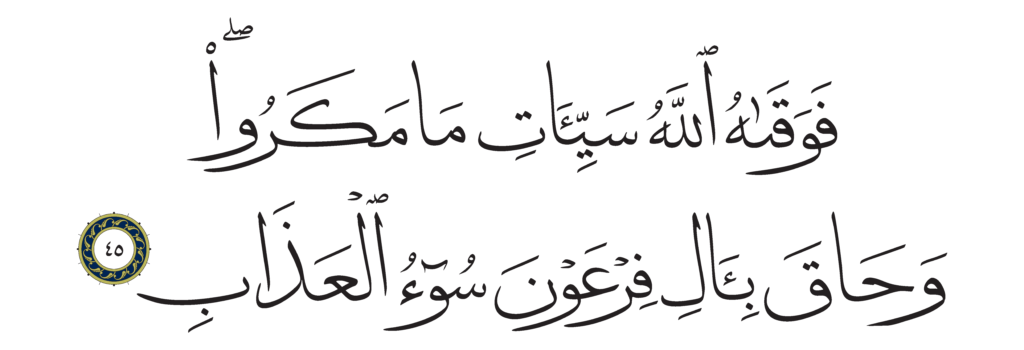 فَوَقَىٰهُ ٱللَّهُ سَيِّـَٔاتِ مَا مَكَرُوا۟ ۖ
وَحَاقَ بِـَٔالِ فِرْعَوْنَ سُوٓءُ ٱلْعَذَابِ ٤٥